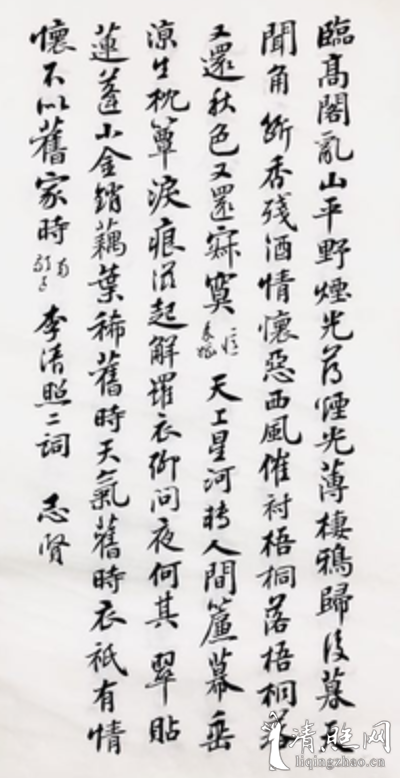 臨高閣亂山平野煙光薄煙光薄棲鴉歸後暮天
聞角 斷香殘酒情懷惡西風催衬梧桐落梧桐落
又還秋色又還寂寞 憶秦娥 天上星河轉人間簾幕垂
涼生枕簟淚痕滋起解羅衣聊問夜何其 翠貼
蓮蓬小金銷藕葉稀舊時天氣舊時衣祇有情
懷不似舊家時 南歌子 李清照二詞 志贤
清照网
liqingzhao.cn